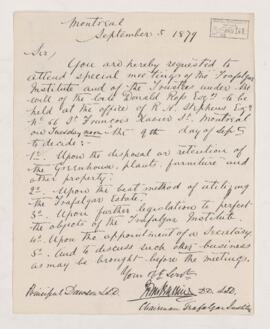 Montreal
September 5 1879
Sir,
You are hereby requested to
attend special meetings of the Trafalgar
Institute and of the Trustees under the
will of the late Donald Ross Esq. to be
held at the office of R. Stephens Esq
No. 61 St Francois Xavier St. Montreal
on Tuesday noon the 9th day of Sept
to decide:-
1o Upon the disposal or retention of
the Greenhouse, plants, furniture and
other property.
2o Upon the best method of utilizing
the Trafalgar Estate.
3o Upon further legislation to perfect
the objects of the Trafalgar Institute.
4o Upon the appointment of a Secretary
5o And to discuss such other business
as may be brought before the meetings.
Your Obt Servt
Principal Dawson LLD.
Chairman Trafalgar Institute